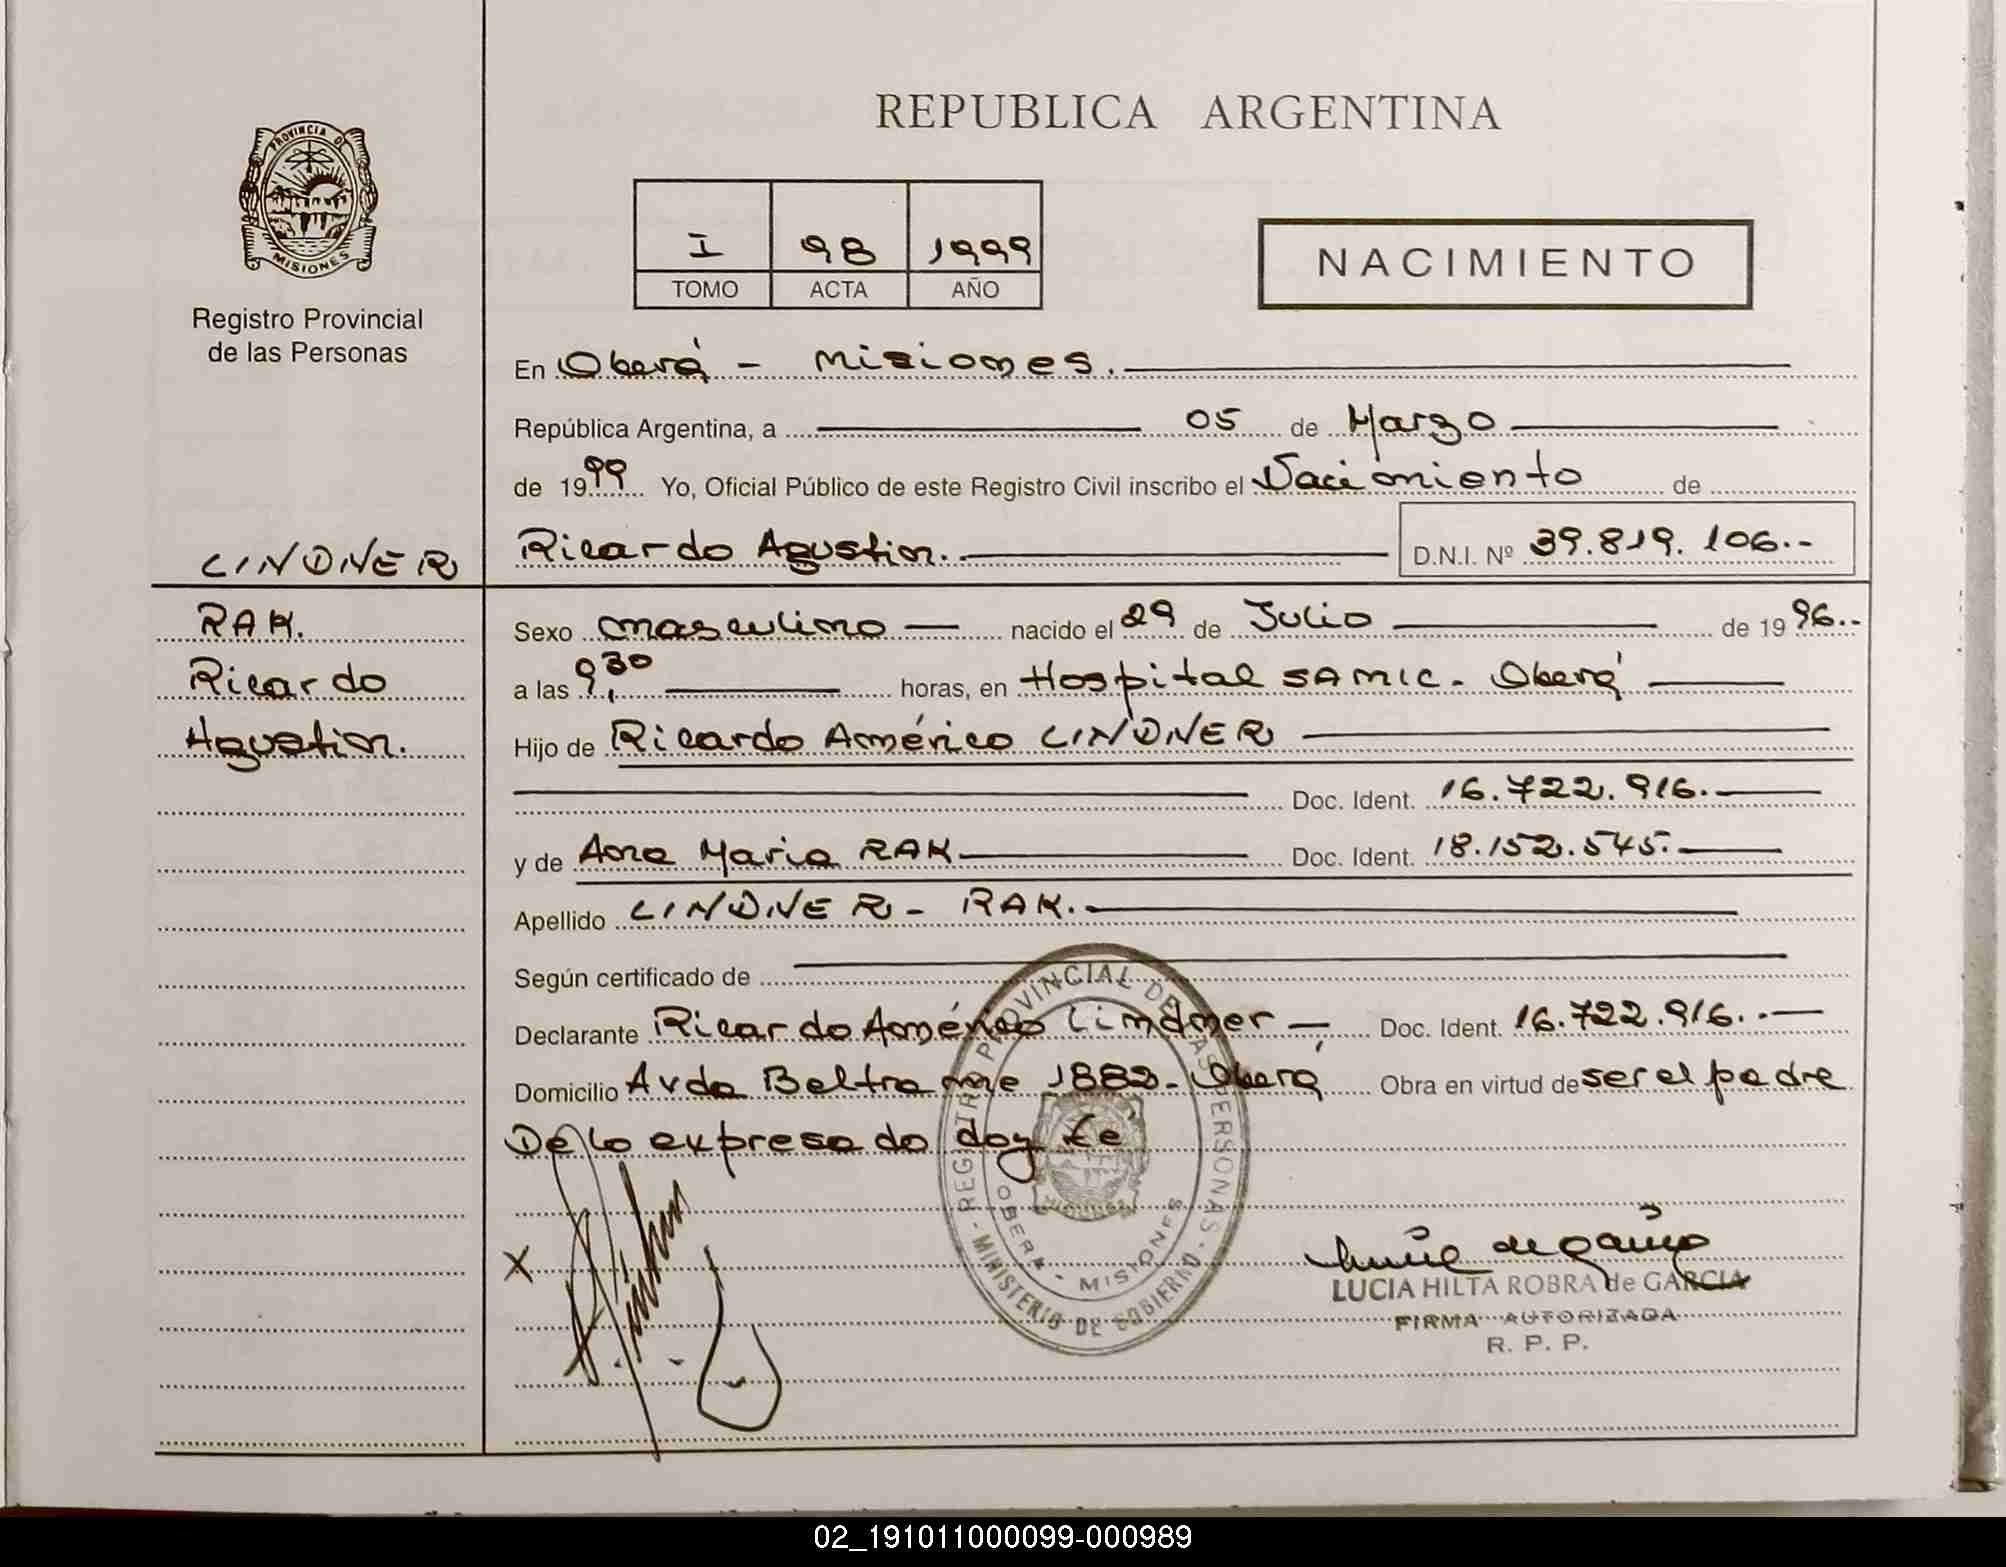 REPUBLICA ARGENTINA
PROVINCIA D
MISIONES
Registro Provincial
de las Personas
I 98 1999
TOMO ACTA AÑO
NACIMIENTO
En Oberá - Misiones.
República Argentina, a 05 de Marzo
de 1999 Yo, Oficial Público de este Registro Civil inscribo el Nacimiento de
LINDNER
Ricardo Agustin. D.N.I. Nº 39.819.106.-
RAK.
Ricardo
Agustin.
Sexo masculino nacido el 29 de Julio de 1996.-
a las 9,30 horas, en Hospital SAMIC - Oberá
Hijo de Ricardo Américo LINDNER
Doc. Ident. 16.722.916.
y de Ana Maria RAK Doc. Ident. 18.152.545.
Apellido LINDNER - RAK.
Según certificado de
Declarante Ricardo Américo Lindner Doc. Ident. 16.722.916.-
Domicilio Avda Beltrame 1882 - Oberá Obra en virtud de ser el padre
De lo expresado doy fe
X
REGISTRO PROVINCIAL DE LAS PERSONAS - MINISTERIO DE GOBIERNO -
OBERA - MISIONES
LUCIA HILTA ROBRA de GARCIA
FIRMA AUTORIZADA
R. P. P.
02_191011000099-000989